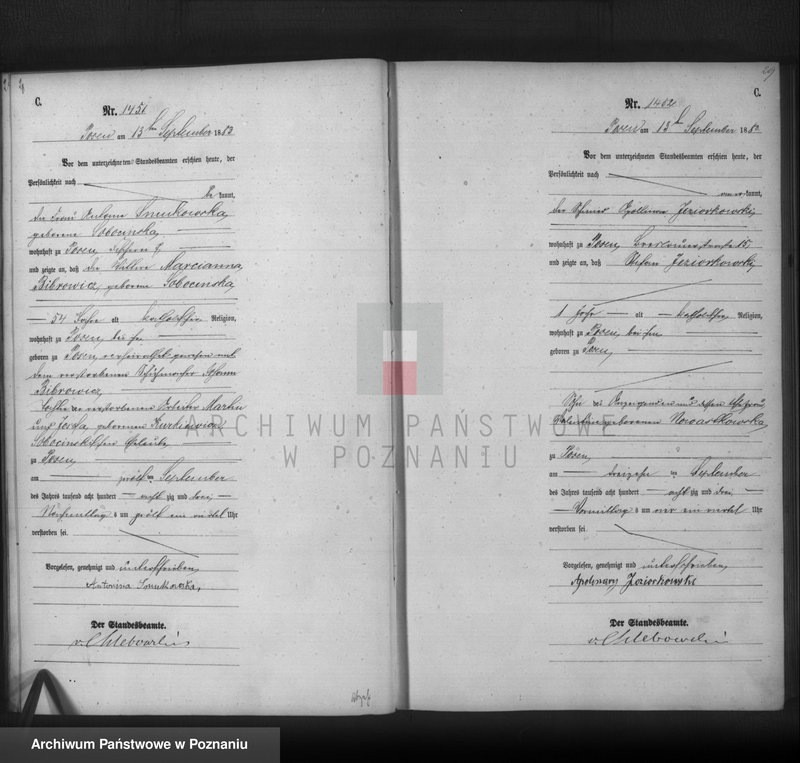 C.
Nr. 1451
Posen am 13ten September 1883
Vor dem unterzeichneten Standesbeamten erschien heute, der
Persönlichkeit nach
be kannt,
die Frau Antonina Smukowska,
geborene Sobocinska,
wohnhaft zu Posen,
und zeigte an, daß die Marcianna
Bibrowicz, geborene Sobocinska,
54 Jahre alt katholischer Religion,
wohnhaft zu Posen, bei ihr
geboren zu Posen, verheirathet gewesen mit
dem verstorbenen Schuhmacher
Bibrowicz
Tochter der verstorbenen Martin
und geborenen
Sobocinskischen Eheleute
zu Posen
am zwölften September
des Jahres tausend acht hundert acht zig und drei
Nachmittags um ein viertel Uhr
verstorben sei.
Vorgelesen, genehmigt und unterschrieben
Antonina Smukowska,
Der Standesbeamte.
29
C.
Nr. 1452
Posen am 13ten September 1883
Vor dem unterzeichneten Standesbeamten erschien heute, der
Persönlichkeit nach
kannt,
der Jeziorkowski,
wohnhaft zu Posen, 15
und zeigte an, daß Stefan Jeziorkowski,
1 Jahr alt katholischer Religion,
wohnhaft zu Posen, bei ihm
geboren zu Posen,
Sohn des Anzeigenden und dessen Ehefrau
geborenen
zu Posen
am dreizehnten September
des Jahres tausend acht hundert acht zig und drei
Vormittags um ein viertel Uhr
verstorben sei.
Vorgelesen, genehmigt und unterschrieben
Apolinary Jeziorkowski
Der Standesbeamte.
ARCHIWUM PAŃSTWOWE
W POZNANIU
Archiwum Państwowe w Poznaniu